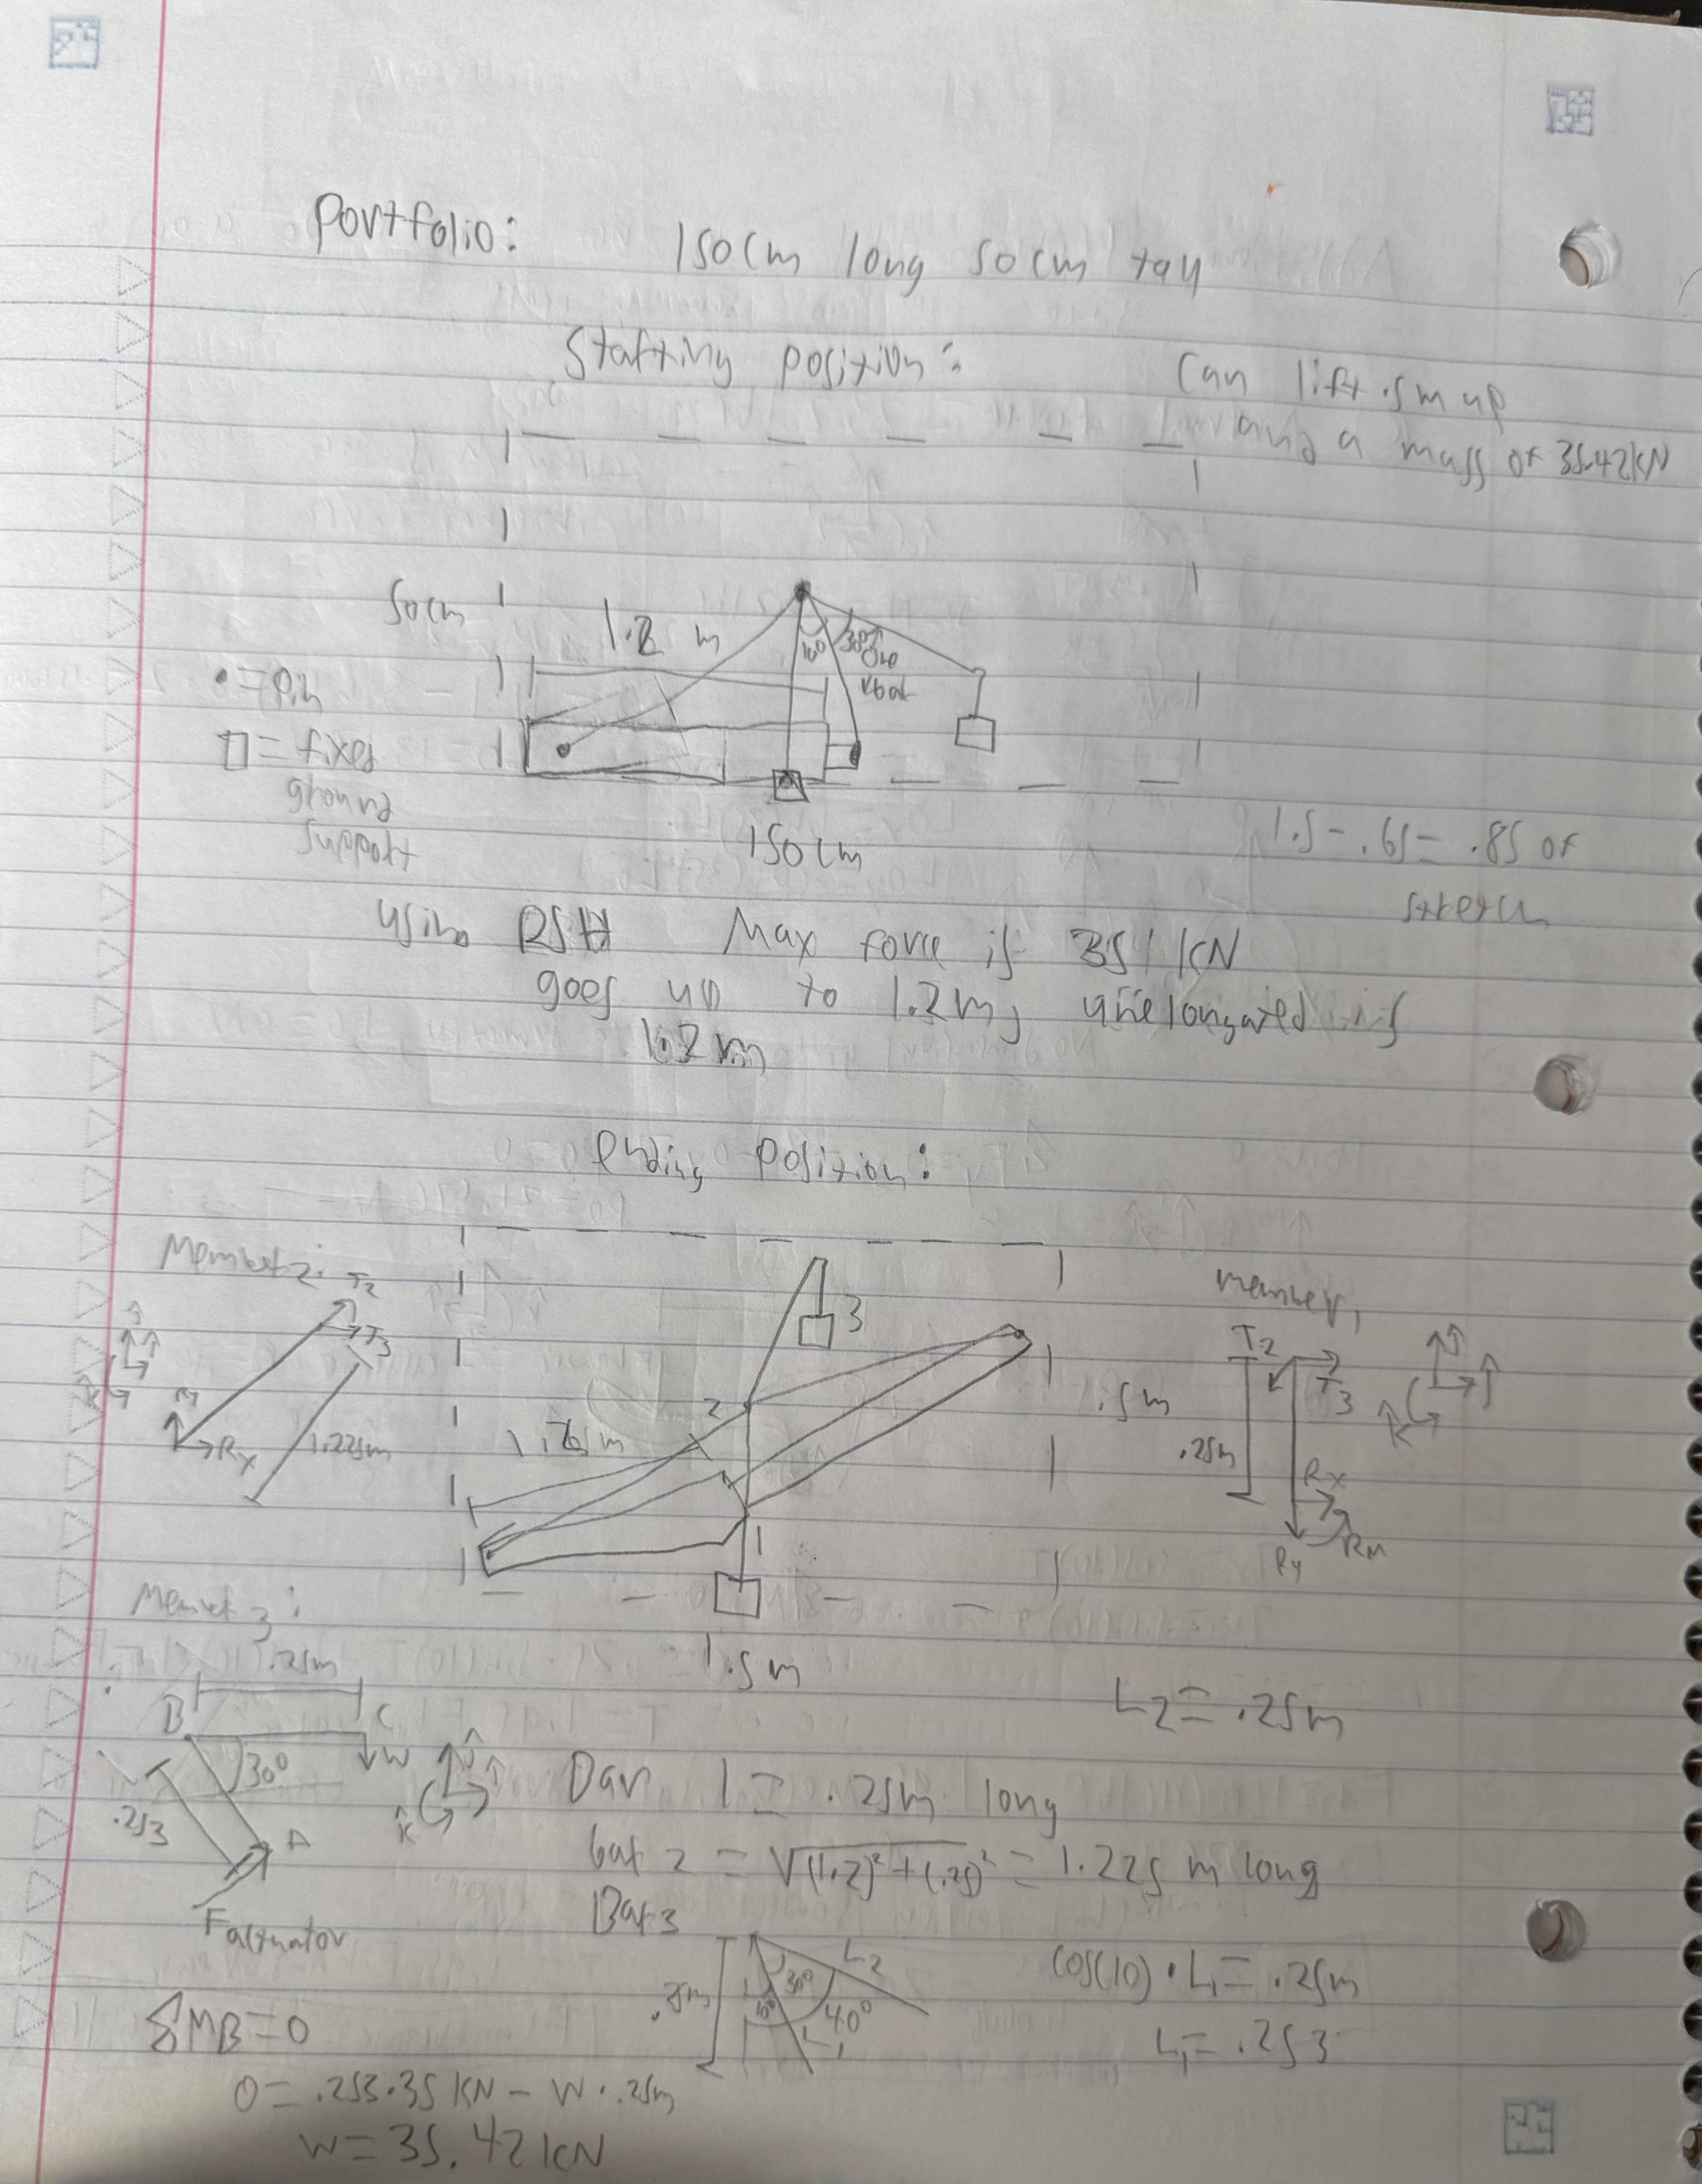 Portfolio:
150cm long 50cm tall
Starting position:
Can lift .5m up
and a mass of 35.42kN
50cm
1.2 m
10°
30°
One
bar
• = Pin
□ = fixed
ground
support
150cm
1.5 - .65 = .85 of
stretch
using RSH Max force is 35 kN
goes up to 1.2m, unelongated is
1.2m
Ending Position:
Member 2:
T2
T3
Ry
Rx
1.225m
3
2
1
.5m
1.5m
Member 1
T2
T3
.25m
Rx
RM
Ry
Member 3:
.25m
B
C
W
30°
.253
A
Factuator
L2 = .25m
Bar 1 = .25m long
bar 2 = √(1.2)²+(.25)² = 1.225 m long
Bar 3
L2
30°
10°
40°
L1
cos(10) • L1 = .25m
L1 = .253
ΣMB=0
0 = .253•35 KN - W • .25m
W = 35.42 kN